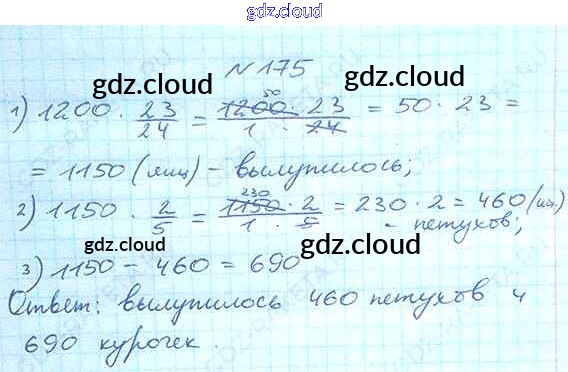 gdz.cloud
N 175
gdz.cloud gdz.cloud
1) 1200 · 23/24 = 1200 · 23 / 1 · 24 = 50 · 23 =
50
= 1150 (яиц) - вылупилось;
2) 1150 · 2/5 = 1150 · 2 / 1 · 5 = 230 · 2 = 460 (шт.)
230
- петухов;
gdz.cloud gdz.cloud
3) 1150 - 460 = 690
Ответ: вылупилось 460 петухов и
690 курочек.